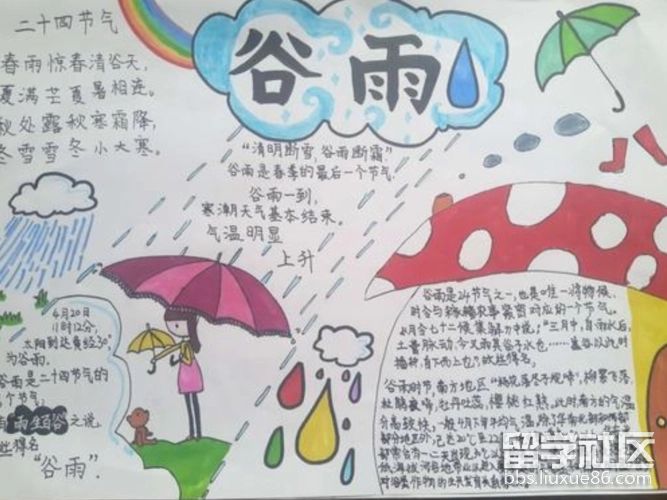 二十四节气
春雨惊春清谷天,
夏满芒夏暑相连。
秋处露秋寒霜降,
冬雪雪冬小大寒。
谷雨
“清明断雪,谷雨断霜”
谷雨是春季的最后一个节气
谷雨一到,
寒潮天气基本结束。
气温明显
上升
4月20日
11时12分,
太阳到达黄经30°
为谷雨。
谷雨是二十四节气的
个节气,
雨生百谷之说,
得名
“谷雨”.
谷雨是24节气之一,也是唯一将物候、
时令与农事紧密对应的一个节气。
《月令七十二候集解》中说:“三月中,自雨水后,
土膏脉动,今又雨其谷于水也……盖谷以此时
播种,自下而上也”,故此得名。
谷雨时节,南方地区“杨花落尽子规啼”,柳絮飞落,
杜鹃夜啼,牡丹吐蕊,樱桃红熟,此时南方的气温
升高较快,一般4月下旬平均气温,除了华南北部和
部分地区外,已达20℃
留学社区
bbs.liuxue86.com